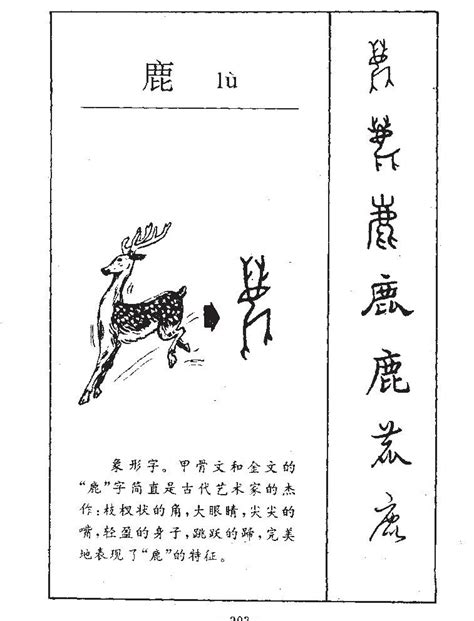 鹿 lù
象形字。甲骨文和金文的
“鹿”字简直是古代艺术家的杰
作：枝杈状的角，大眼睛，尖尖的
嘴，轻盈的身子，跳跃的蹄，完美
地表现了“鹿”的特征。
鹿
鹿
鹿